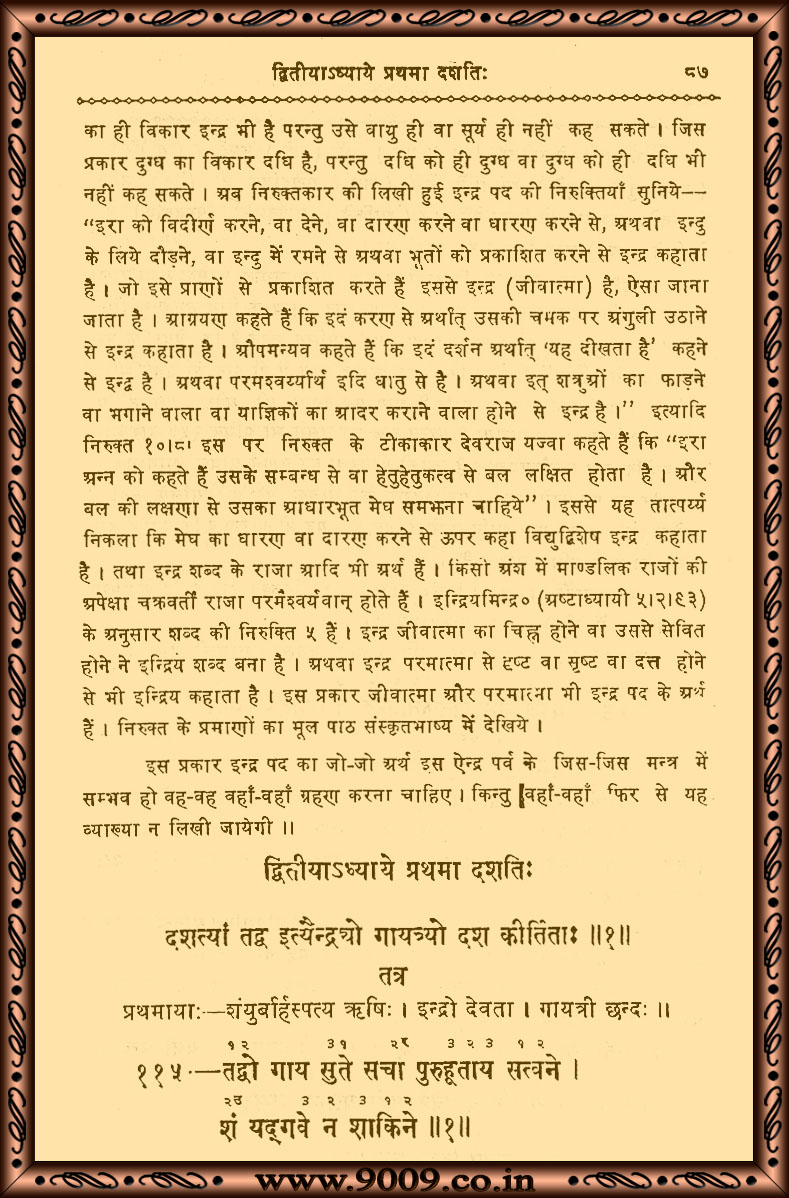 द्वितीयाऽध्याये प्रथमा दशतिः ८७
का ही विकार इन्द्र भी है परन्तु उसे वायु ही वा सूर्य ही नहीं कह सकते । जिस
प्रकार दुग्ध का विकार दधि है, परन्तु दधि को ही दुग्ध वा दुग्ध को ही दधि भी
नहीं कह सकते । अब निरुक्तकार की लिखी हुई इन्द्र पद की निरुक्तियाँ सुनिये--
“इरा को विदीर्ण करने, वा देने, वा दारण करने वा धारण करने से, अथवा इन्दु
के लिये दौड़ने, वा इन्दु में रमने से अथवा भूतों को प्रकाशित करने से इन्द्र कहाता
है । जो इसे प्राणों से प्रकाशित करते हैं इससे इन्द्र (जीवात्मा) है, ऐसा जाना
जाता है । आग्रयण कहते हैं कि इदं करण से अर्थात् उसकी चमक पर अंगुली उठाने
से इन्द्र कहाता है । औपमन्यव कहते हैं कि इदं दर्शन अर्थात् ‘यह दीखता है’ कहने
से इन्द्र है । अथवा परमश्वर्य्यार्थ इदि धातु से है । अथवा इत् शत्रुओं का फाड़ने
वा भगाने वाला वा याज्ञिकों का आदर कराने वाला होने से इन्द्र है ।” इत्यादि
निरुक्त १०।८। इस पर निरुक्त के टीकाकार देवराज यज्वा कहते हैं कि “इरा
अन्न को कहते हैं उसके सम्बन्ध से वा हेतुहेतुकत्व से बल लक्षित होता है । और
बल की लक्षणा से उसका आधारभूत मेघ समझना चाहिये” । इससे यह तात्पर्य्य
निकला कि मेघ का धारण वा दारण करने से ऊपर कहा विद्युद्विशेष इन्द्र कहाता
है । तथा इन्द्र शब्द के राजा आदि भी अर्थ हैं । किसी अंश में माण्डलिक राजों की
अपेक्षा चक्रवर्ती राजा परमैश्वर्यवान् होते हैं । इन्द्रियमिन्द्र० (अष्टाध्यायी ५।२।९३)
के अनुसार शब्द की निरुक्ति ५ हैं । इन्द्र जीवात्मा का चिह्न होने वा उससे सेवित
होने ने इन्द्रिय शब्द बना है । अथवा इन्द्र परमात्मा से दृष्ट वा सृष्ट वा दत्त होने
से भी इन्द्रिय कहाता है । इस प्रकार जीवात्मा और परमात्मा भी इन्द्र पद के अर्थ
हैं । निरुक्त के प्रमाणों का मूल पाठ संस्कृतभाष्य में देखिये ।
इस प्रकार इन्द्र पद का जो-जो अर्थ इस ऐन्द्र पर्व के जिस-जिस मन्त्र में
सम्भव हो वह-वह वहाँ-वहाँ ग्रहण करना चाहिए । किन्तु वहाँ-वहाँ फिर से यह
व्याख्या न लिखी जायेगी ॥
द्वितीयाऽध्याये प्रथमा दशतिः
दशत्यां तद्व इत्यैन्द्रयो गायत्र्यो दश कीर्तिताः ॥१॥
तत्र
प्रथमायाः—शंयुर्बार्हस्पत्य ऋषिः । इन्द्रो देवता । गायत्री छन्दः ॥
१ २ ३१ २र ३ २ ३ १ २
११५.—तद्वो गाय सुते सचा पुरुहूताय सत्वने ।
२उ ३ २ ३ १ २
शं यद्गवे न शाकिने ॥१॥
www.9009.co.in